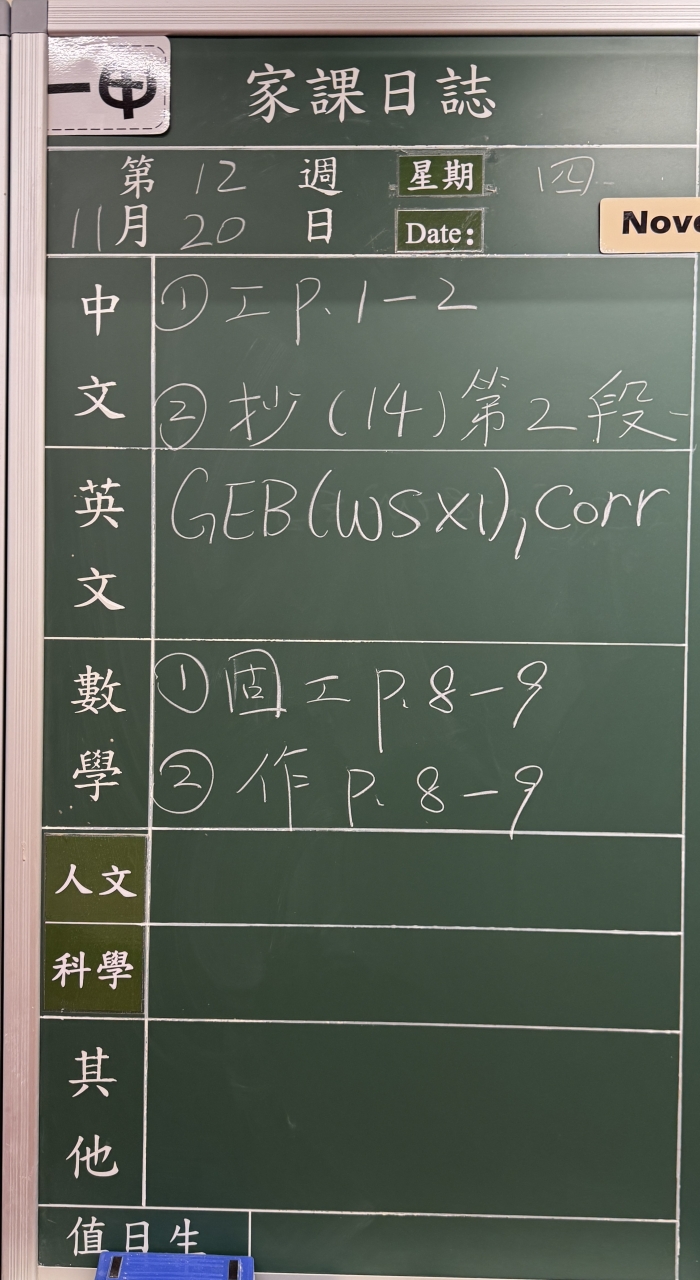 一甲
家課日誌
第 12 週 星期 四
11月 20 日 Date:
Nove
中文
① 工 p. 1-2
② 抄 (14) 第 2 段
英文
GEB(WSX1), Corr
數學
① 固工 p. 8-9
② 作 p. 8-9
人文
科學
其他
值日生